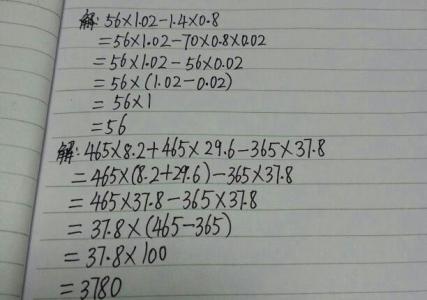 解: 56×1.02-1.4×0.8
=56×1.02-70×0.8×0.02
=56×1.02-56×0.02
=56×(1.02-0.02)
=56×1
=56
解: 465×8.2+465×29.6-365×37.8
=465×(8.2+29.6)-365×37.8
=465×37.8-365×37.8
=37.8×(465-365)
=37.8×100
=3780